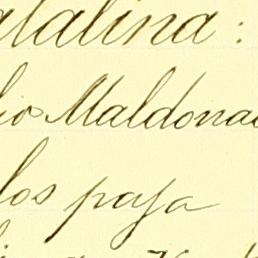 atalina:
lio Maldonad
los paja